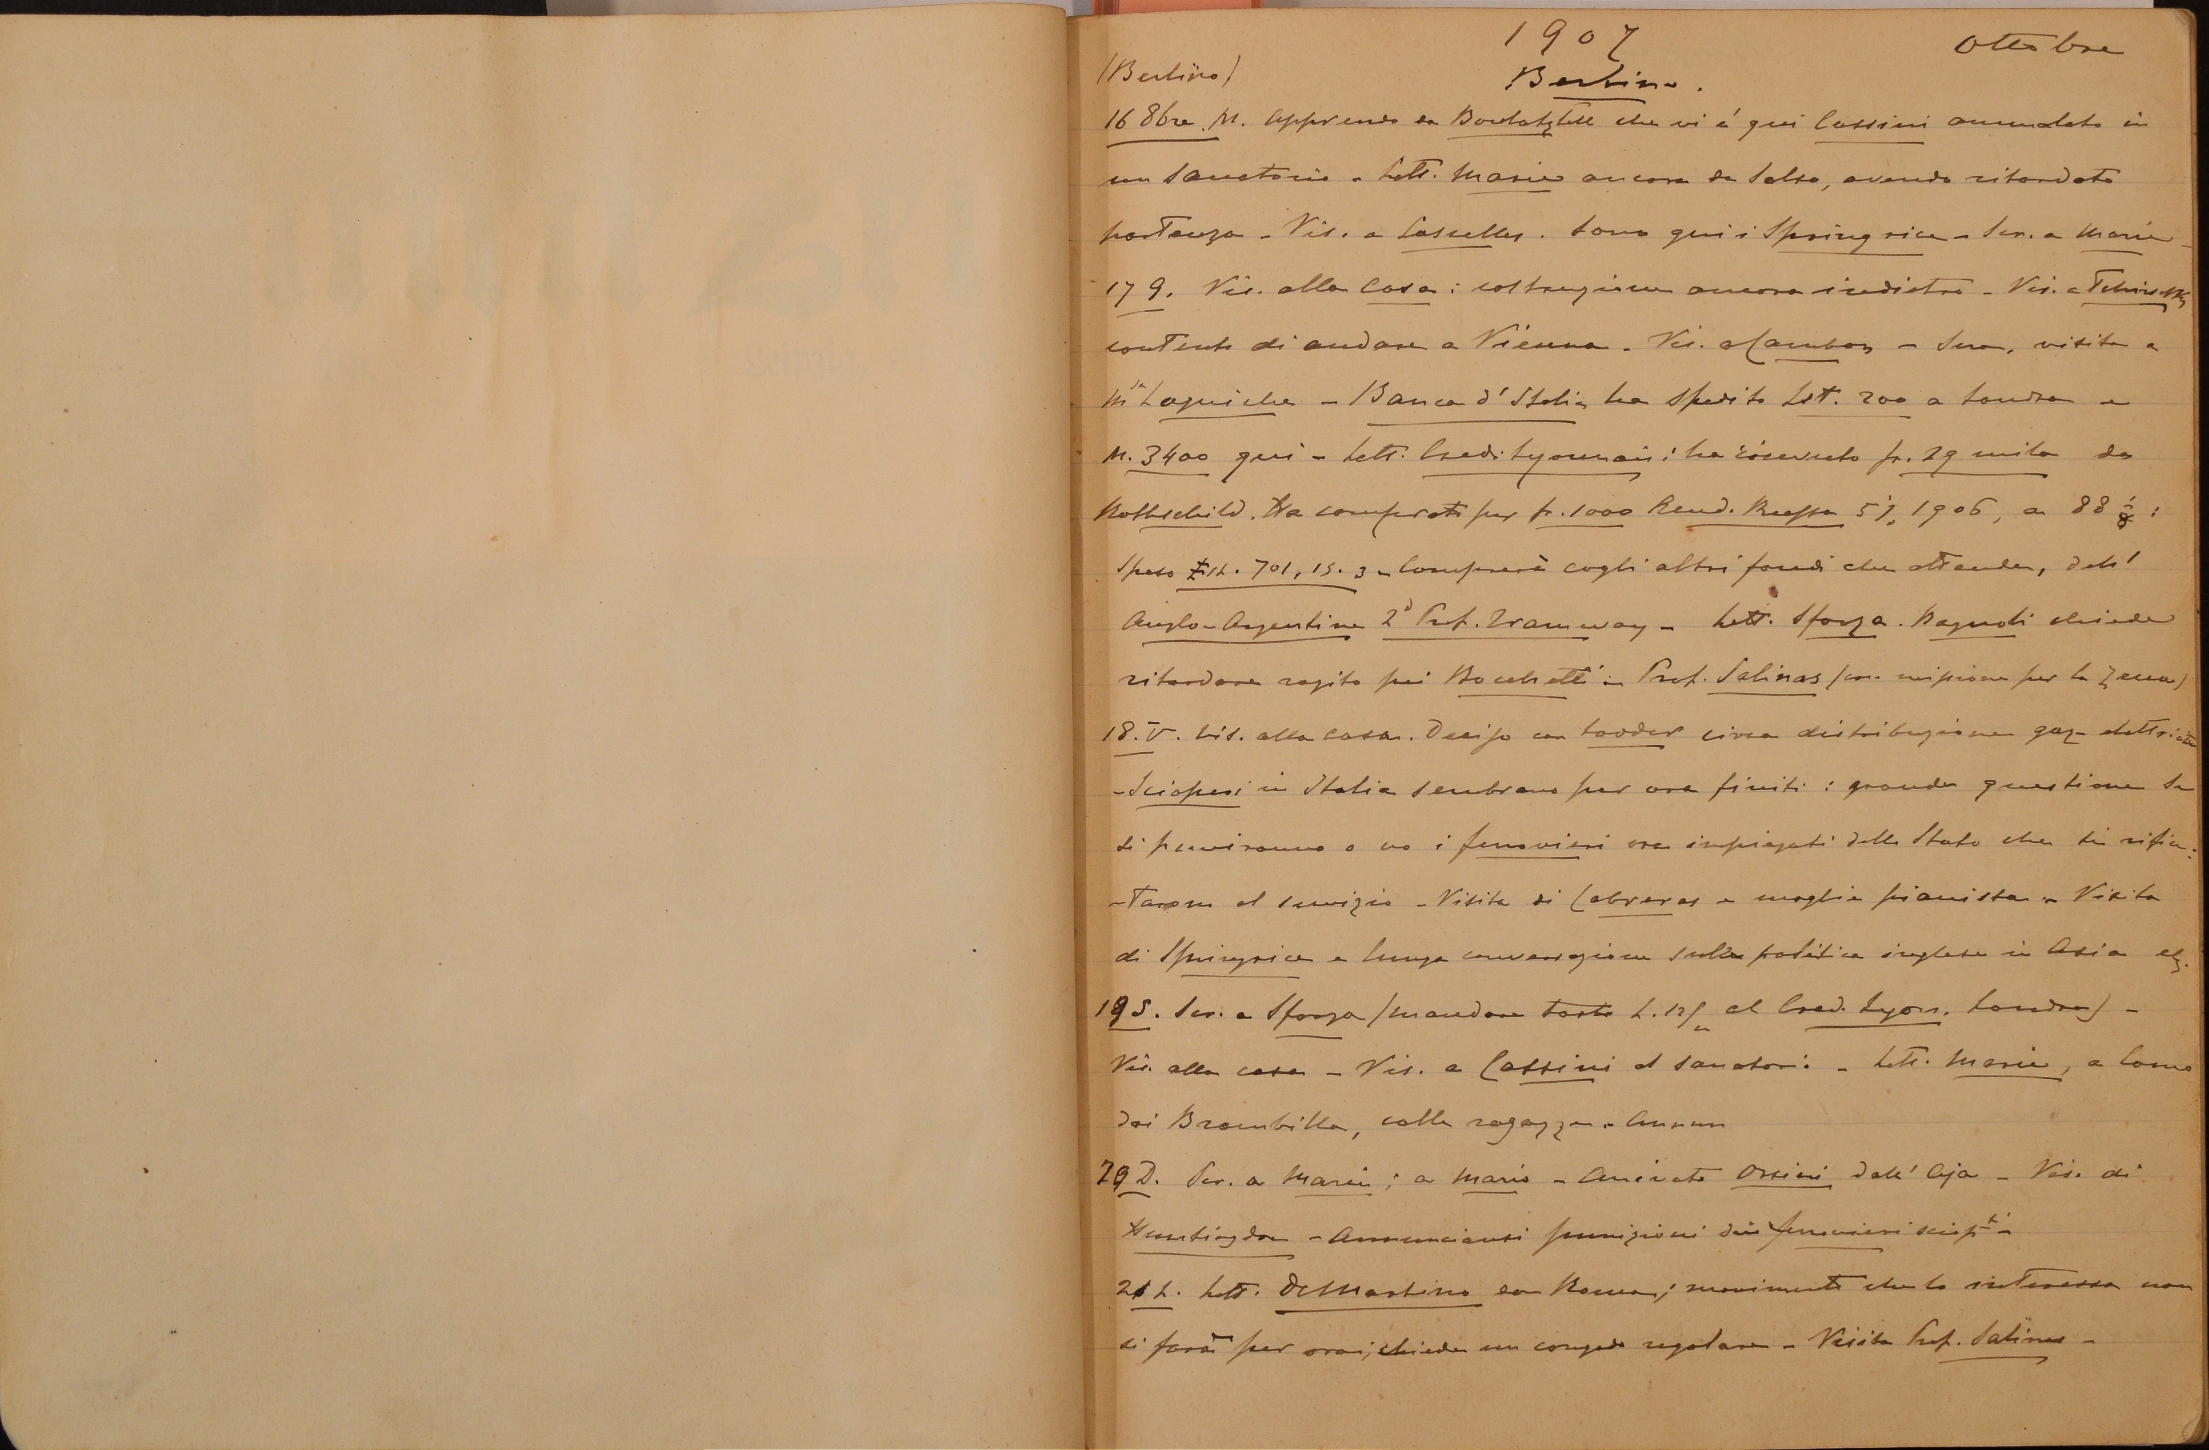 1907
Ottobre
(Berlino)
Berlino.
16 8bre. M. Apprendo da che vi é qui Cassini ammalato in
un Sanatorio - Lett. Maria ancora da Salso, avendo ritardato
partenza - Vis. a Lascelles. Sono qui i Springrice - Scr. a Maria -
17 G. Vis. alla Casa: costruzione ancora indietro - Vis. a Tchirschky
contento di andare a Vienna. Vis. a Cambon - Sera, visita a
Laguiche - Banca d'Italia ha spedito Lst. 200 a Londra e
M. 3400 qui - Lett. Cred. Lyonnais: ha ricevuto fr. 29 mila da
Rothschild. Ha comprato per fr. 1000 Rend. Russa 5% 1906, a 88
Speso Lst. 701, 15. 3 - Comprerà cogli altri fondi che attende, dell'
Anglo-Argentine 2d Pref. Tramway - Lett. Sforza. Bagnoli chiede
ritardare rogito pei Bocchetti - Prof. Salinas (con. missione per la Zecca)
18. V. Vis. alla Casa. Deciso con circa distribuzione gaz elettricità
- Scioperi in Italia sembrano per ora finiti: grande questione se
si puniranno o no i ferrovieri ora impiegati dello Stato che si rifiu:
-tarono al servizio - Visita di Cabreras e moglie pianista - Visita
di Springrice e lunga conversazione sulla politica inglese in Asia etc.
19 S. Scr. a Sforza (mandare tosto L. 12/m al Cred. Lyon. Londra) -
Vis. alla casa - Vis. a Cassini al sanatorio - Lett. Maria, a Como
dai Brambilla, colle ragazze -
20 D. Scr. a Maria; a Mario - Arrivato Orsini dall'Aja - Vis. di
Huntingdon - Annunciansi punizioni dei ferrovieri sciopti -
21 L. Lett. DeMartino da Roma; movimento che lo interessa non
si farà per ora; chiede un congedo regolare - Visita Prof. Salinas -